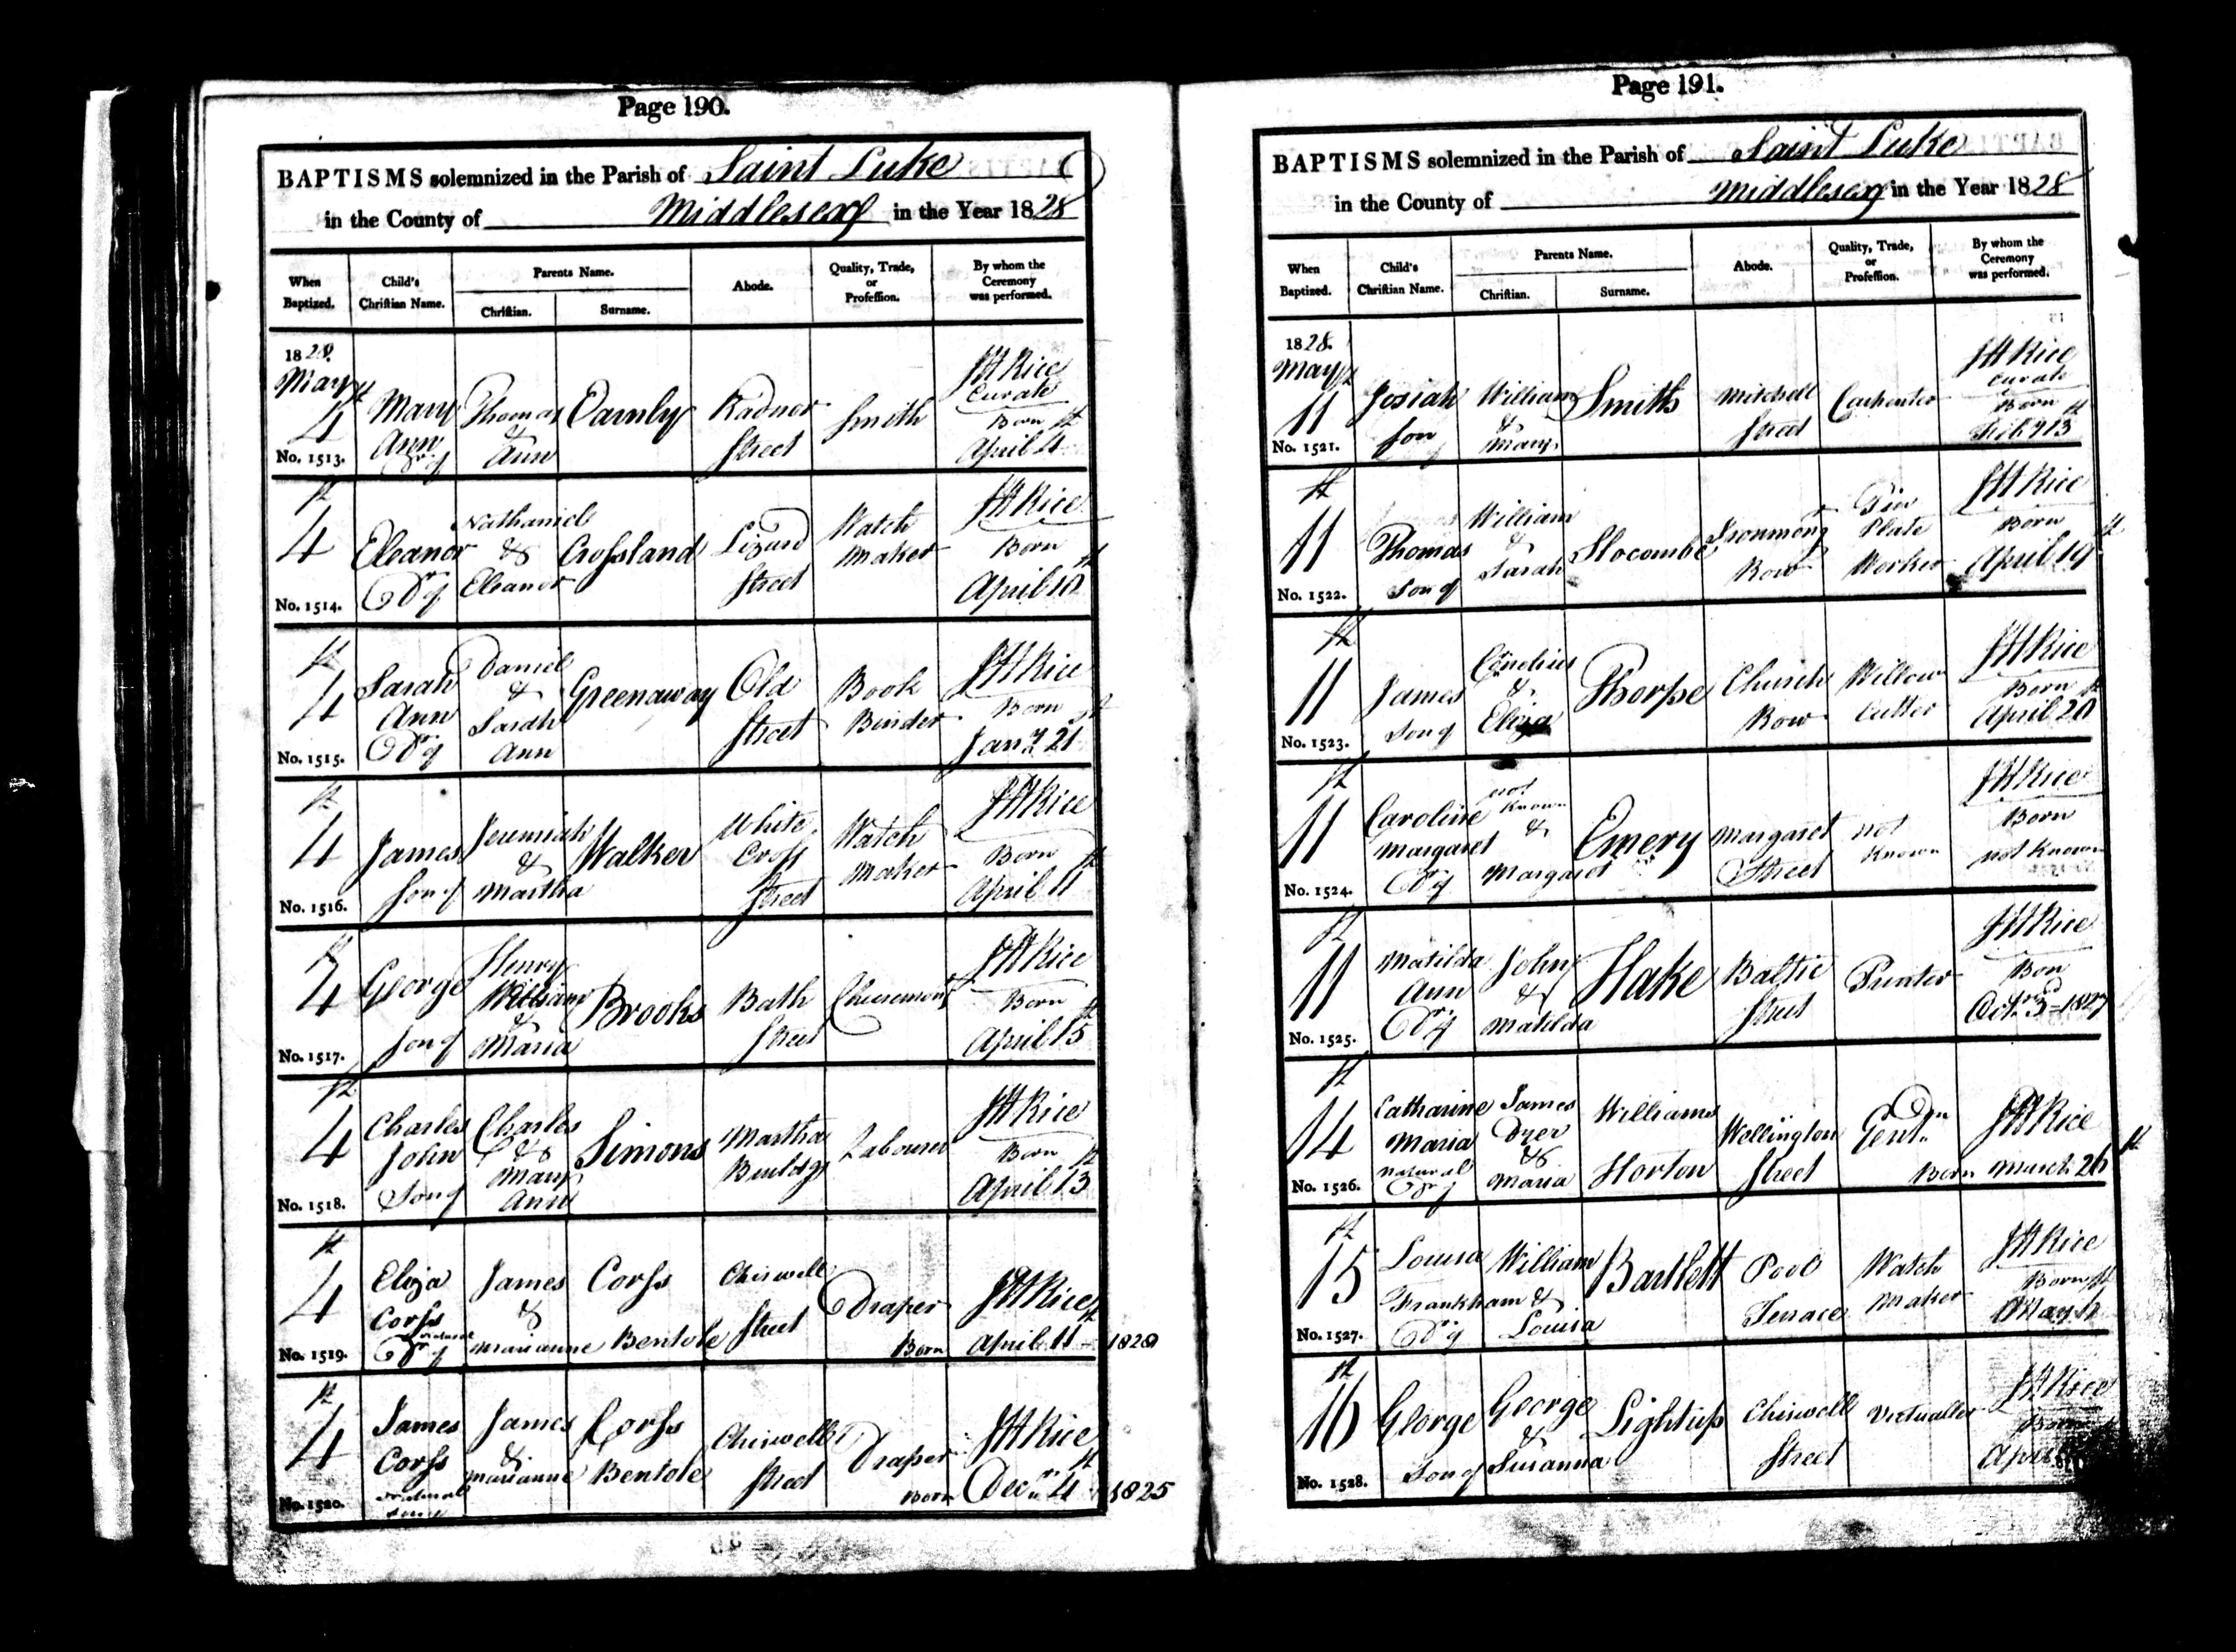 Page 190.
BAPTISMS solemnized in the Parish of Saint Luke
in the County of Middlesex in the Year 1828
When Baptized.
Child's Chriſtian Name.
Parents Name.
Chriſtian.
Surname.
Abode.
Quality, Trade, or Profeſſion.
By whom the Ceremony was performed.
1828. May 4th Mary Ann Dr of Thomas & Ann Radnor Street Smith JH Rice Curate Born April 4th
No. 1513.
4th Eleanor Dr of Nathaniel & Eleanor Croſsland Lizard Street Watch Maker JH Rice Born April 10th
No. 1514.
4th Sarah Ann Dr of Daniel & Sarah Ann Greenaway Old Street Book Binder JH Rice Born Jany 21st
No. 1515.
4th James Son of Jeremiah & Martha Walker White Croſs Street Watch Maker JH Rice Born April 11th
No. 1516.
4th George Son of Henry William & Maria Brooks Bath Street Cheesemonr JH Rice Born April 15th
No. 1517.
4th Charles John Son of Charles & Mary Ann Simons Martha Buildgs Labourer JH Rice Born April 13th
No. 1518.
4th Eliza Corſs natural Dr of James & Marianne Corſs Bentole Chiswell Street Draper JH Rice Born April 11th 1828
No. 1519.
4th James Corſs natural Son of James & Marianne Corſs Bentole Chiswell Street Draper JH Rice Born Decr 4th 1825
No. 1520.
Page 191.
BAPTISMS solemnized in the Parish of Saint Luke
in the County of Middlesex in the Year 1828
When Baptized.
Child's Chriſtian Name.
Parents Name.
Chriſtian.
Surname.
Abode.
Quality, Trade, or Profeſſion.
By whom the Ceremony was performed.
1828. May 11th Josiah Son of William & Mary Smith Mitchell Street Carpenter JH Rice Curate Born Feby 13th
No. 1521.
11th Thomas Son of William & Sarah Slocombe Ironmongr Row Tin Plate Worker JH Rice Born April 19th
No. 1522.
11th James Son of Cornelius & Eliza Thorpe Church Row Willow Cutter JH Rice Born April 20th
No. 1523.
11th Caroline Margaret Dr of not Known & Margaret Emery Margaret Street not Known JH Rice Born not Known
No. 1524.
11th Matilda Ann Dr of John & Matilda Hake Baltic Street Printer JH Rice Born Octr 3rd 1827
No. 1525.
14th Catharine Maria natural Dr of James Dyer & Maria Williams Horton Wellington Street Gentn JH Rice Born March 26th
No. 1526.
15th Louisa Frankham Dr of William & Louisa Bartlett Pool Terrace Watch Maker JH Rice Born May
No. 1527.
16th George Son of George & Susanna Lightup Chiswell Street Victualler JH Rice Born April
No. 1528.